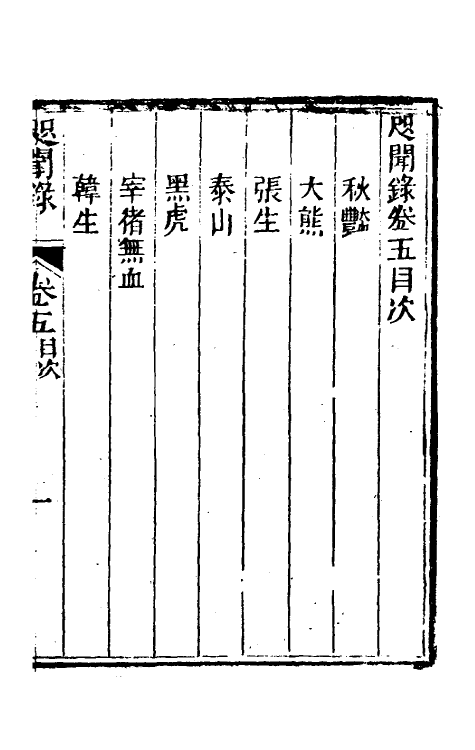 咫聞錄卷五目次
秋豔
大熊
張生
泰山
黑虎
宰猪無血
韓生
咫聞錄
卷五目次
一